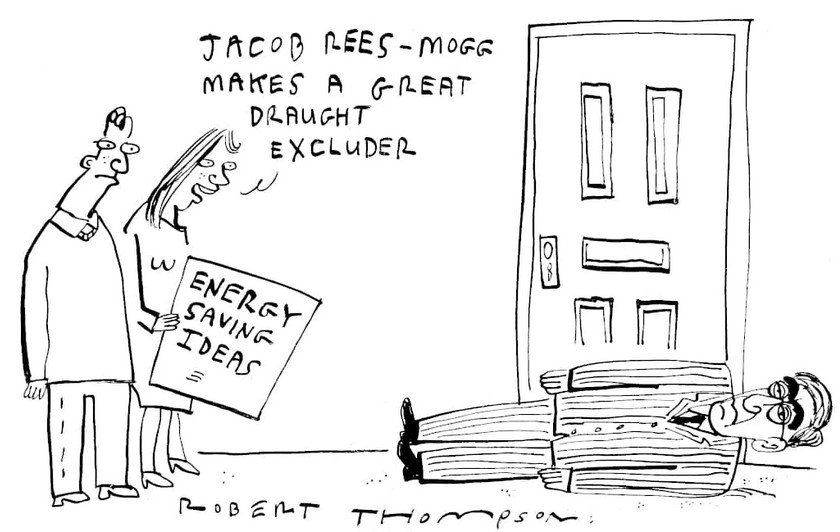 JACOB REES-MOGG
MAKES A GREAT
DRAUGHT
EXCLUDER
ENERGY
SAVING
IDEAS
ROBERT THOMPSON.